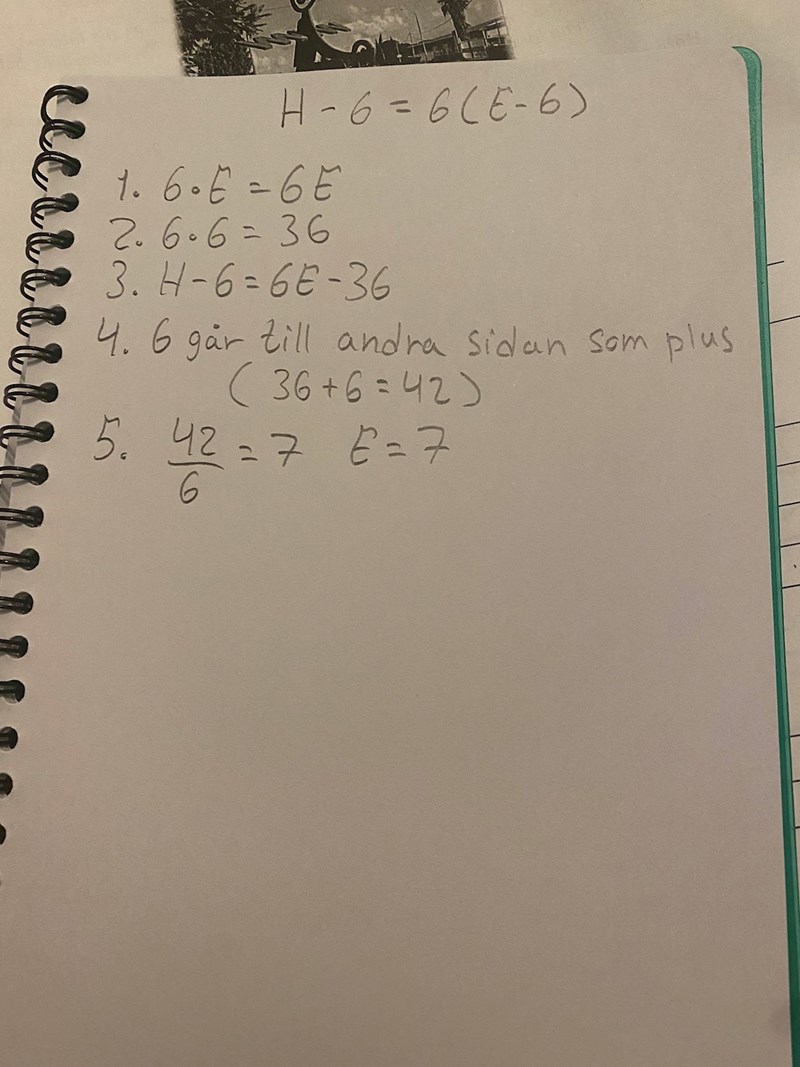 H - 6 = 6(E-6)
1. 6·E = 6E
2. 6·6 = 36
3. H-6 = 6E-36
4. 6 går till andra sidan som plus
(36+6=42)
5. 42/6 = 7 E = 7